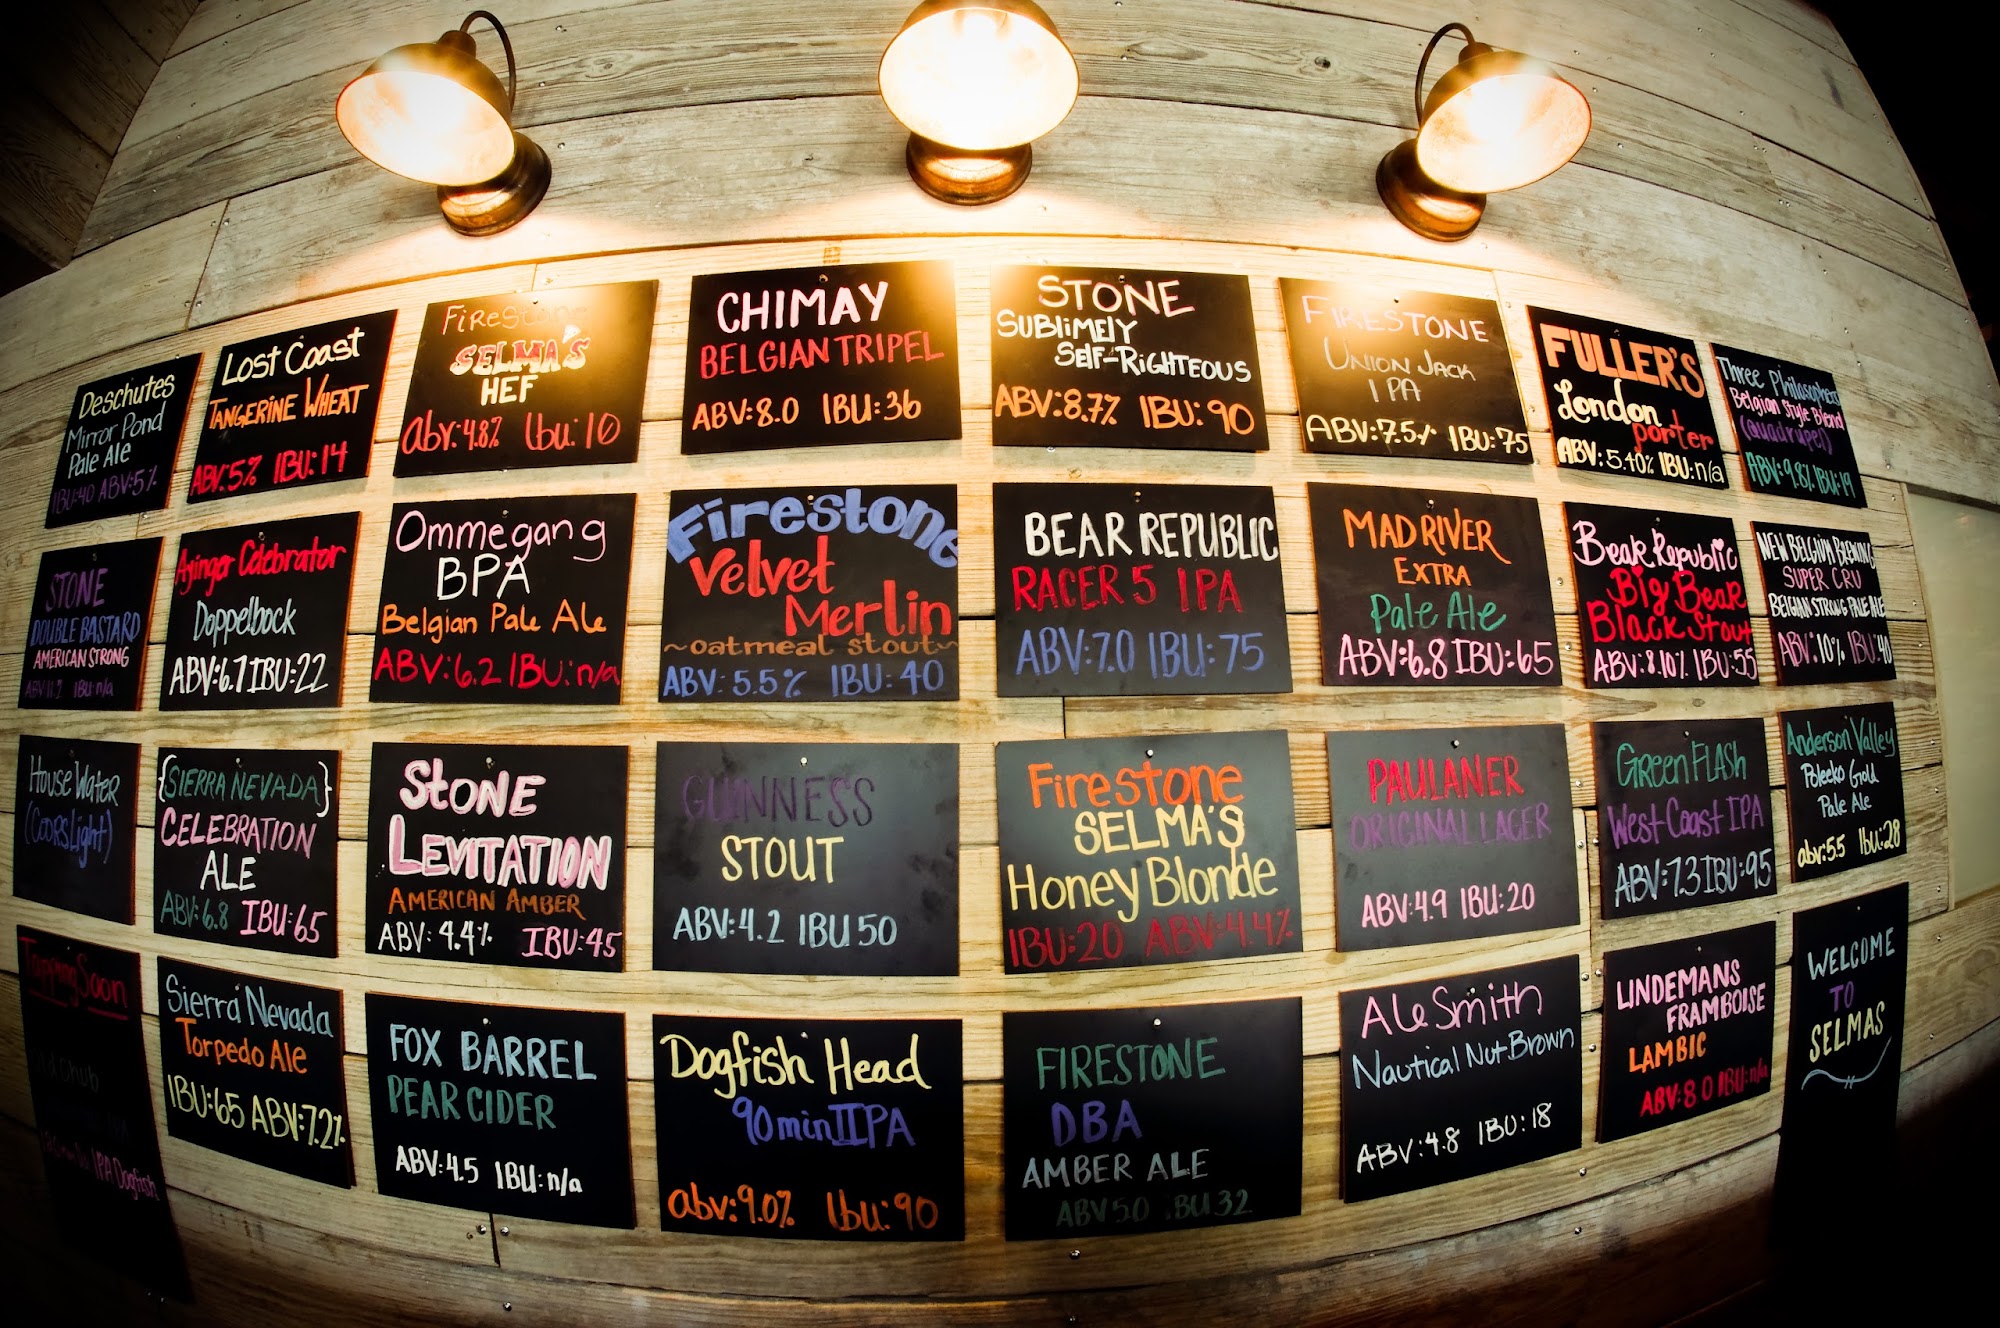 Deschutes
Mirror Pond
Pale Ale
IBU:40 ABV:5%
Lost Coast
TANGERINE WHEAT
ABV:5% IBU:14
Firestone
SELMA'S
HEF
abv:4.8% Ibu:10
CHIMAY
BELGIAN TRIPEL
ABV:8.0 IBU:36
STONE
SUBLIMELY
SELF-RIGHTEOUS
ABV:8.7% IBU:90
FIRESTONE
UNION JACK
IPA
ABV:7.5% IBU:75
FULLER'S
London
porter
ABV:5.40% IBU:n/a
Three Philosophers
Belgian Style Blend
(quadrupel)
ABV:9.8% IBU:19
STONE
DOUBLE BASTARD
AMERICAN STRONG
IBU:n/a
Ayinger Celebrator
Dopplebock
ABV:6.7 IBU:22
Ommegang
BPA
Belgian Pale Ale
ABV:6.2 IBU:n/a
Firestone
Velvet
Merlin
~oatmeal stout~
ABV:5.5% IBU:40
BEAR REPUBLIC
RACER 5 IPA
ABV:7.0 IBU:75
MAD RIVER
EXTRA
Pale Ale
ABV:6.8 IBU:65
Bear Republic
Big Bear
Black Stout
ABV:8.10% IBU:55
NEW BELGIUM BREWING
SUPER CRU
BELGIAN STRONG PALE ALE
ABV:10% IBU:40
House Water
(Coors Light)
{SIERRA NEVADA}
CELEBRATION
ALE
ABV:6.8 IBU:65
STONE
LEVITATION
AMERICAN AMBER
ABV:4.4% IBU:45
GUINNESS
STOUT
ABV:4.2 IBU 50
Firestone
SELMA'S
Honey Blonde
IBU:20 ABV:4.4%
PAULANER
ORIGINAL LAGER
ABV:4.9 IBU:20
Green FLASH
West Coast IPA
ABV:7.3 IBU:95
Anderson Valley
Poleeko Gold
Pale Ale
abv:5.5 Ibu:28
Tapping Soon
Old Chub
IPA Dogfish
Sierra Nevada
Torpedo Ale
IBU:65 ABV:7.2%
FOX BARREL
PEAR CIDER
ABV:4.5 IBU:n/a
Dogfish Head
90 min IIPA
abv:9.0% Ibu:90
FIRESTONE
DBA
AMBER ALE
ABV 5.0 IBU 32
AleSmith
Nautical Nut Brown
ABV:4.8 IBU:18
LINDEMANS
FRAMBOISE
LAMBIC
ABV:8.0 IBU:n/a
WELCOME
TO
SELMAS